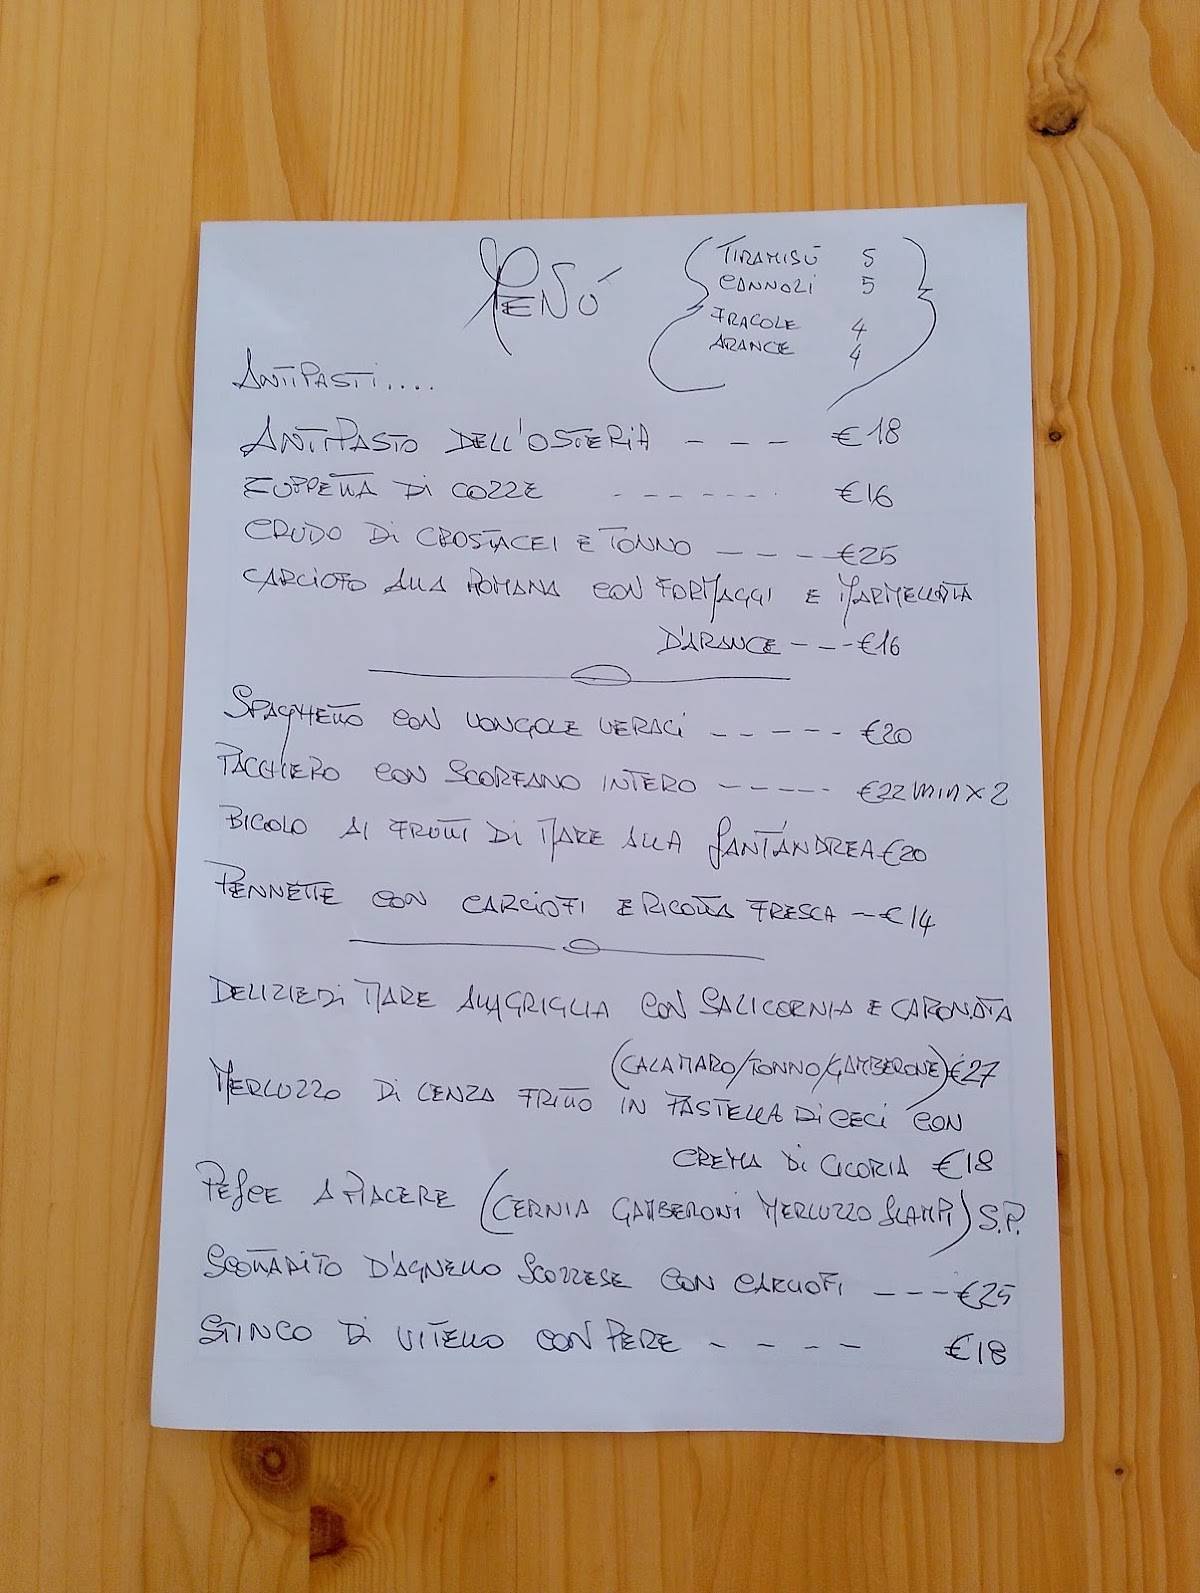 MENÚ
TIRAMISÙ 5
CANNOLI 5
FRAGOLE 4
ARANCE 4
ANTIPASTI....
ANTIPASTO DELL'OSTERIA - - - €18
ZUPPETTA DI COZZE - - - - - - - €16
CRUDO DI CROSTACEI E TONNO - - - - €25
CARCIOFO ALLA ROMANA CON FORMAGGI E MARMELLATA
D'ARANCE - - - €16
SPAGHETTO CON VONGOLE VERACI - - - - - €20
PACCHERO CON SCORFANO INTERO - - - - - €22 min x 2
BIGOLO AI FRUTTI DI MARE ALLA SANT'ANDREA €20
PENNETTE CON CARCIOFI E RICOTTA FRESCA - €14
DELIZIE DI MARE ALLA GRIGLIA CON SALICORNIA E CAPONATA
(CALAMARO/TONNO/GAMBERONE) €27
MERLUZZO DI LENZA FRITTO IN PASTELLA DI CECI CON
CREMA DI CICORIA €18
PESCE A PIACERE (CERNIA GAMBERONI MERLUZZO SCAMPI) S.P.
SCOTTADITO D'AGNELLO SCOZZESE CON CARCIOFI - - - €25
STINCO DI VITELLO CON PERE - - - - €18